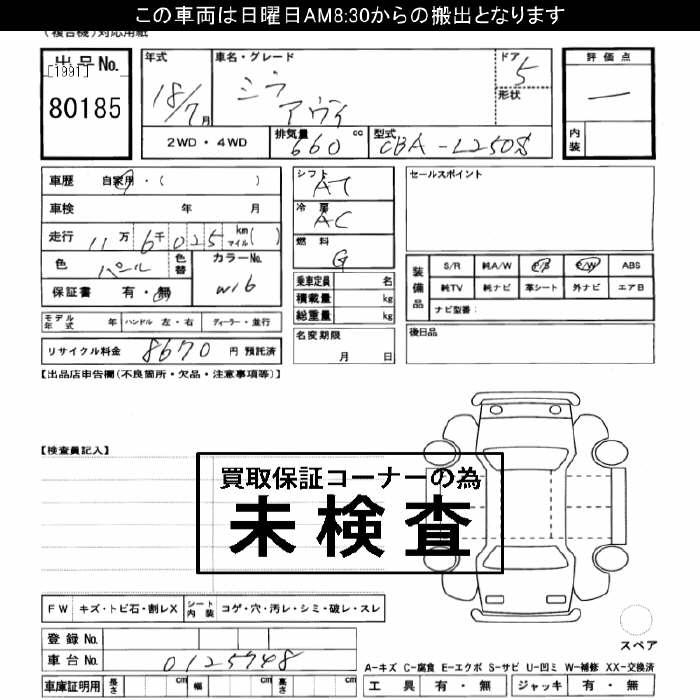 この車両は日曜日AM8:30からの搬出となります
(複合機)対応用紙
出品No.
[1991]
80185
年式
18/7月
車名・グレード
ミラ
アヴィ
ドア
5
形状
評価点
内装
2WD・4WD
排気量
660
cc
型式
CBA-L250S
車歴 自家用・( )
車検 年 月
走行 11万6千025 km マイル( )
色 パール
色替
カラーNo.
W16
保証書 有・無
モデル年式 年 ハンドル 左・右 ディーラー・並行
リサイクル料金 8670 円 預託済
シフト
AT
冷房
AC
燃料
G
乗車定員 名
積載量 kg
総重量 kg
名変期限
月 日
セールスポイント
装備品
S/R 純A/W P/S P/W ABS
純TV 純ナビ 革シート 外ナビ エアB
ナビ型番:
後日品
【出品店申告欄(不良箇所・欠品・注意事項等)】
【検査員記入】
買取保証コーナーの為
未検査
FW キズ・トビ石・割レX シート内装 コゲ・穴・汚レ・シミ・破レ・スレ
登録No.
車台No. 0125748
車庫証明用 長さ cm 幅 cm 高さ cm
スペア
A-キズ C-腐食 E-エクボ S-サビ U-凹ミ W-補修 XX-交換済
工具 有・無 ジャッキ 有・無